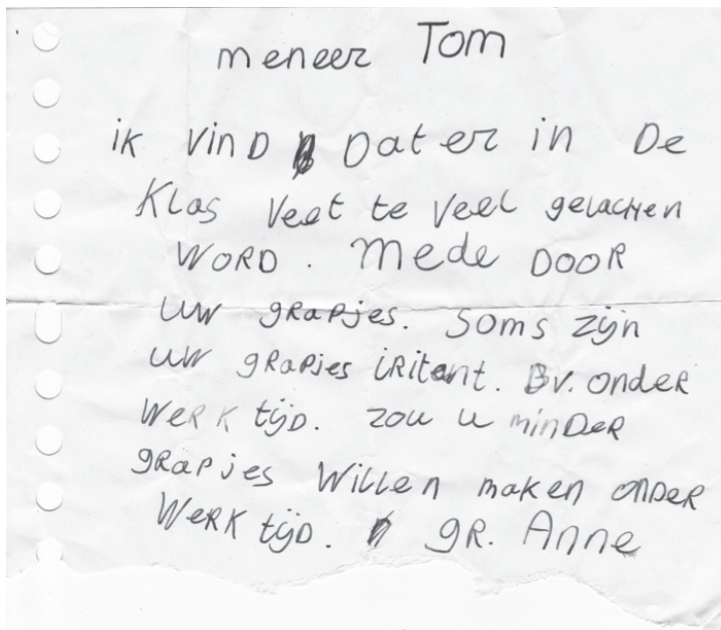 meneer Tom
ik vind dat er in de
klas veet te veel gelachen
word. Mede door
uw grapjes. Soms zijn
uw grapjes iritant. Bv. onder
werk tijd. zou u minder
grapjes willen maken onder
werk tijd. gr. Anne